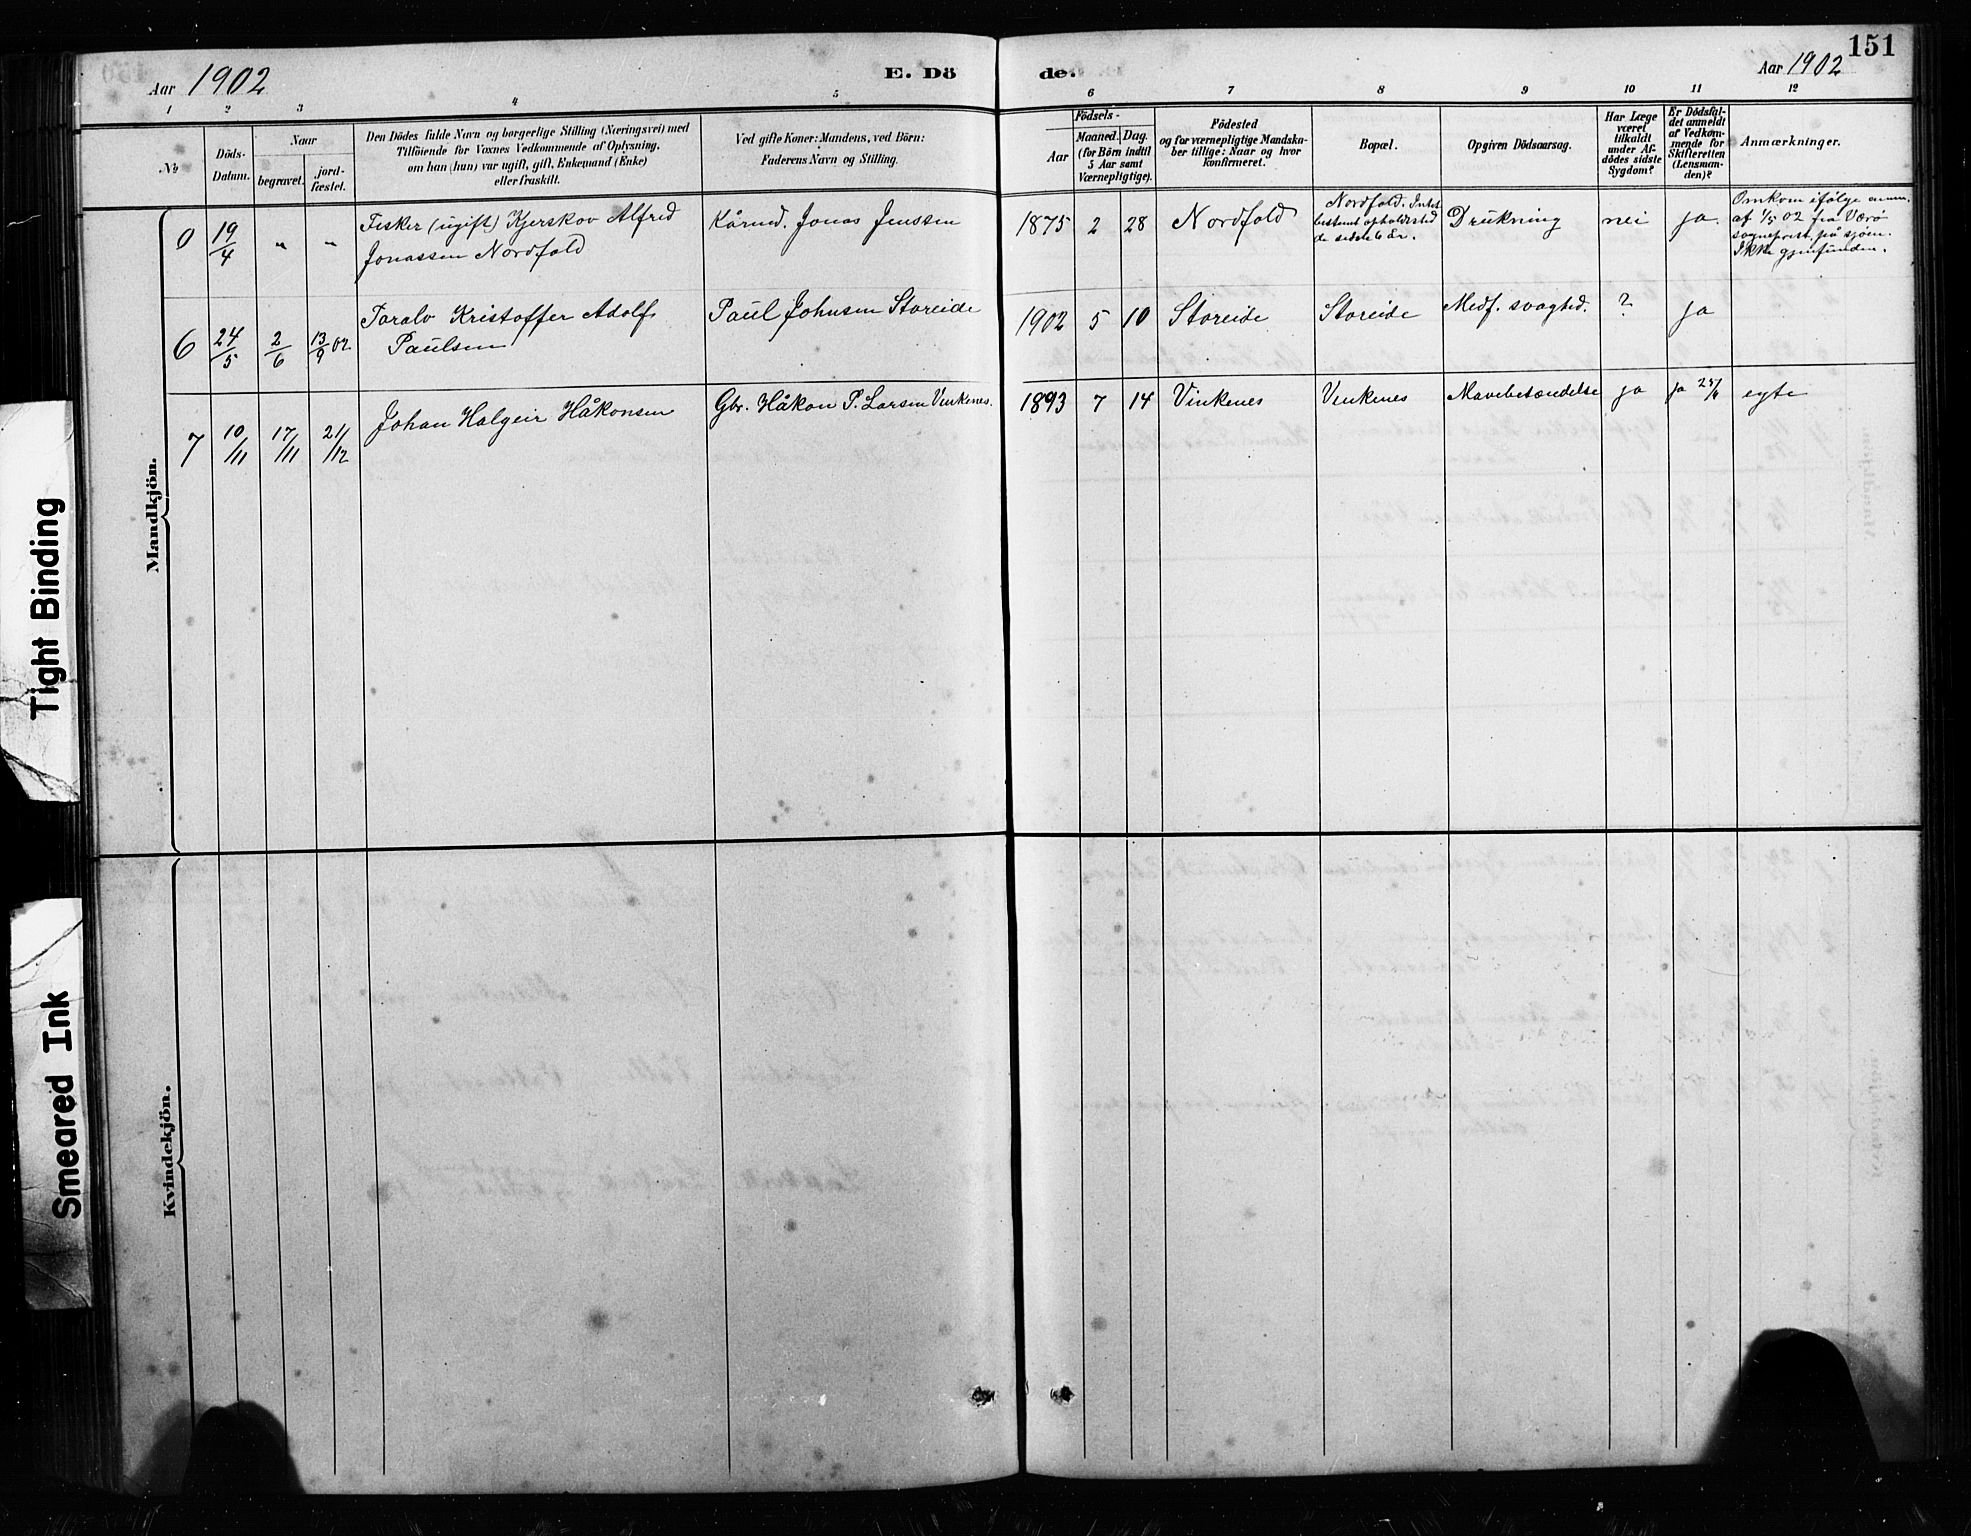 151
Aar 1902
E. Dö
de.
Aar 1902
1 2 3 4 5 6 7 8 9 10 11 12
No
Döds-
Datum.
Naar
begravet.
jord-
fæstet.
Den Dödes fulde Navn og borgerlige Stilling (Næringsvei) med
Tilföiende for Voxnes Vedkommende af Oplysning,
om han (hun) var ugift, gift, Enkemand (Enke)
eller fraskilt.
Ved gifte Koner: Mandens, ved Börn:
Faderens Navn og Stilling.
Födsels-
Aar
Maaned.
Dag.
(for Börn indtil
5 Aar samt
Værnepligtige).
Födested
og for værnepligtige Mandska-
ber tillige: Naar og hvor
konfirmeret.
Bopæl.
Opgiven Dödsaarsag.
Har Læge
været
tilkaldt
under Af-
dödes sidste
Sygdom?
Er Dödsfal-
det anmeldt
af Vedkom-
mende for
Skifteretten
(Lensman-
den)?
Anmærkninger.
Mandkjön.
0
19/4
"
"
Fisker (ugift) Kjerskov Alfred
Jonassen Nordfold
Kårmd. Jonas Jenssen
1875 2 28
Nordfold
Nordfold. Intet
bestemt opholdssted
de sidste 6 år.
Drukning
nei
ja.
Omkom ifølge anm.
af 1/5 02 fra Værø
sogneprest på sjøen.
Ikke gjenfunden.
6
24/5
2/6
13/9 02
Toralv Kristoffer Adolf
Paulsen
Paul Johnsen Storeide
1902 5 10
Storeide
Storeide
Medf. svaghed.
?
ja
7
10/11
17/11
21/12
Johan Halgeir Håkonsen
Gbr. Håkon P. Larsen Vinkenes.
1893 7 14
Vinkenes
Vinkenes
Mavebetændelse
ja
ja
egte
Kvindekjön.
Tight Binding
Smeared Ink